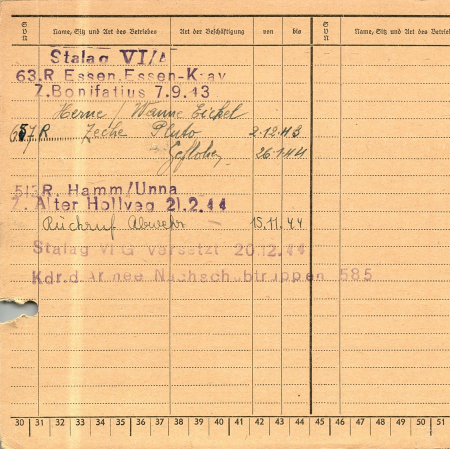 Svn Name, Sitz und Art des Betriebes Art der Beschäftigung von bis Svn Name, Sitz und Art des Betriebes
Stalag VI/A
63.R Essen.Essen-Kray
Z.Bonifatius 7.9.43
Herne / Wanne Eickel
657 R Zeche Pluto 2.12.43
Geflohen 26.1.44
513 R. Hamm/Unna
Z. Alter Hellweg 21.2.44
Rückruf Abwehr 15.11.44
Stalag VI/G versetzt 20.12.44
Kdr.d.Armee Nachschubtruppen 585
30 31 32 33 34 35 36 37 38 39 40 41 42 43 44 45 46 47 48 49 50 51